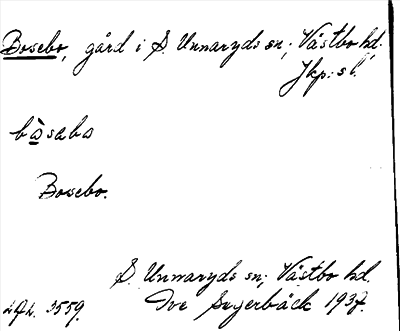 Bosebo, gård i S. Unnaryds sn; Västbo hd.
Jkp:s l.
bòsabo
Bosebo.
S. Unnaryds sn; Västbo hd.
Ive 1937.
3559.